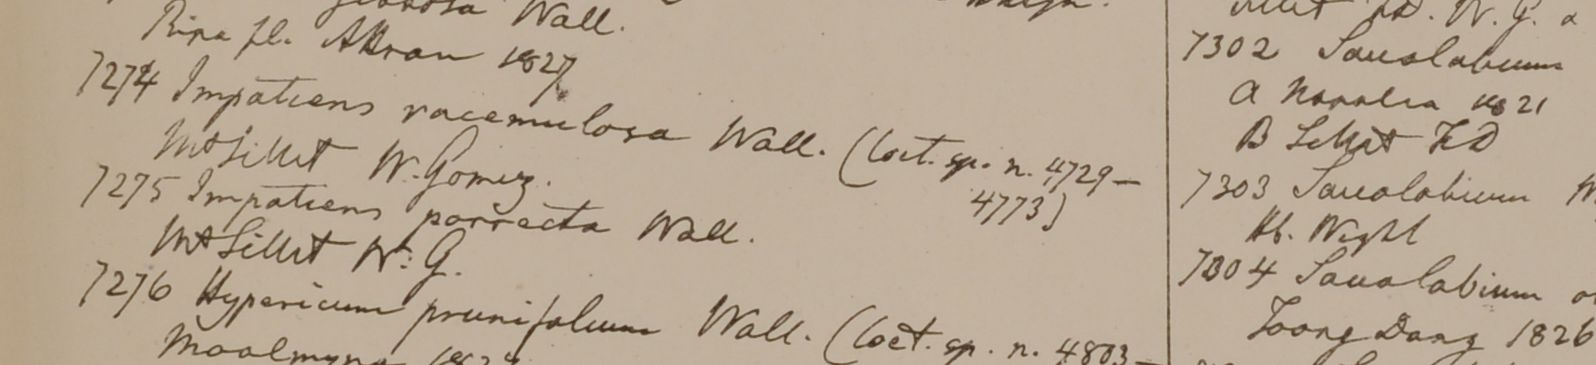 Wall.
Ripa fl. Attran 1827
7274 Impatiens racemulosa Wall. (Coct. sp. n. 4729–
4773)
Mt Sillet W. Gomez.
7275 Impatiens porrecta Wall.
Mt Sillet W. G.
7276 Hypericum prunifolium Wall. (Coct. sp. n. 4803–
W. G.
7302 Saccolabium
a Noralia 1821
B Sillet FD
7303 Saccolabium
Hb. Wight
7304 Saccolabium
Toong Dong 1826